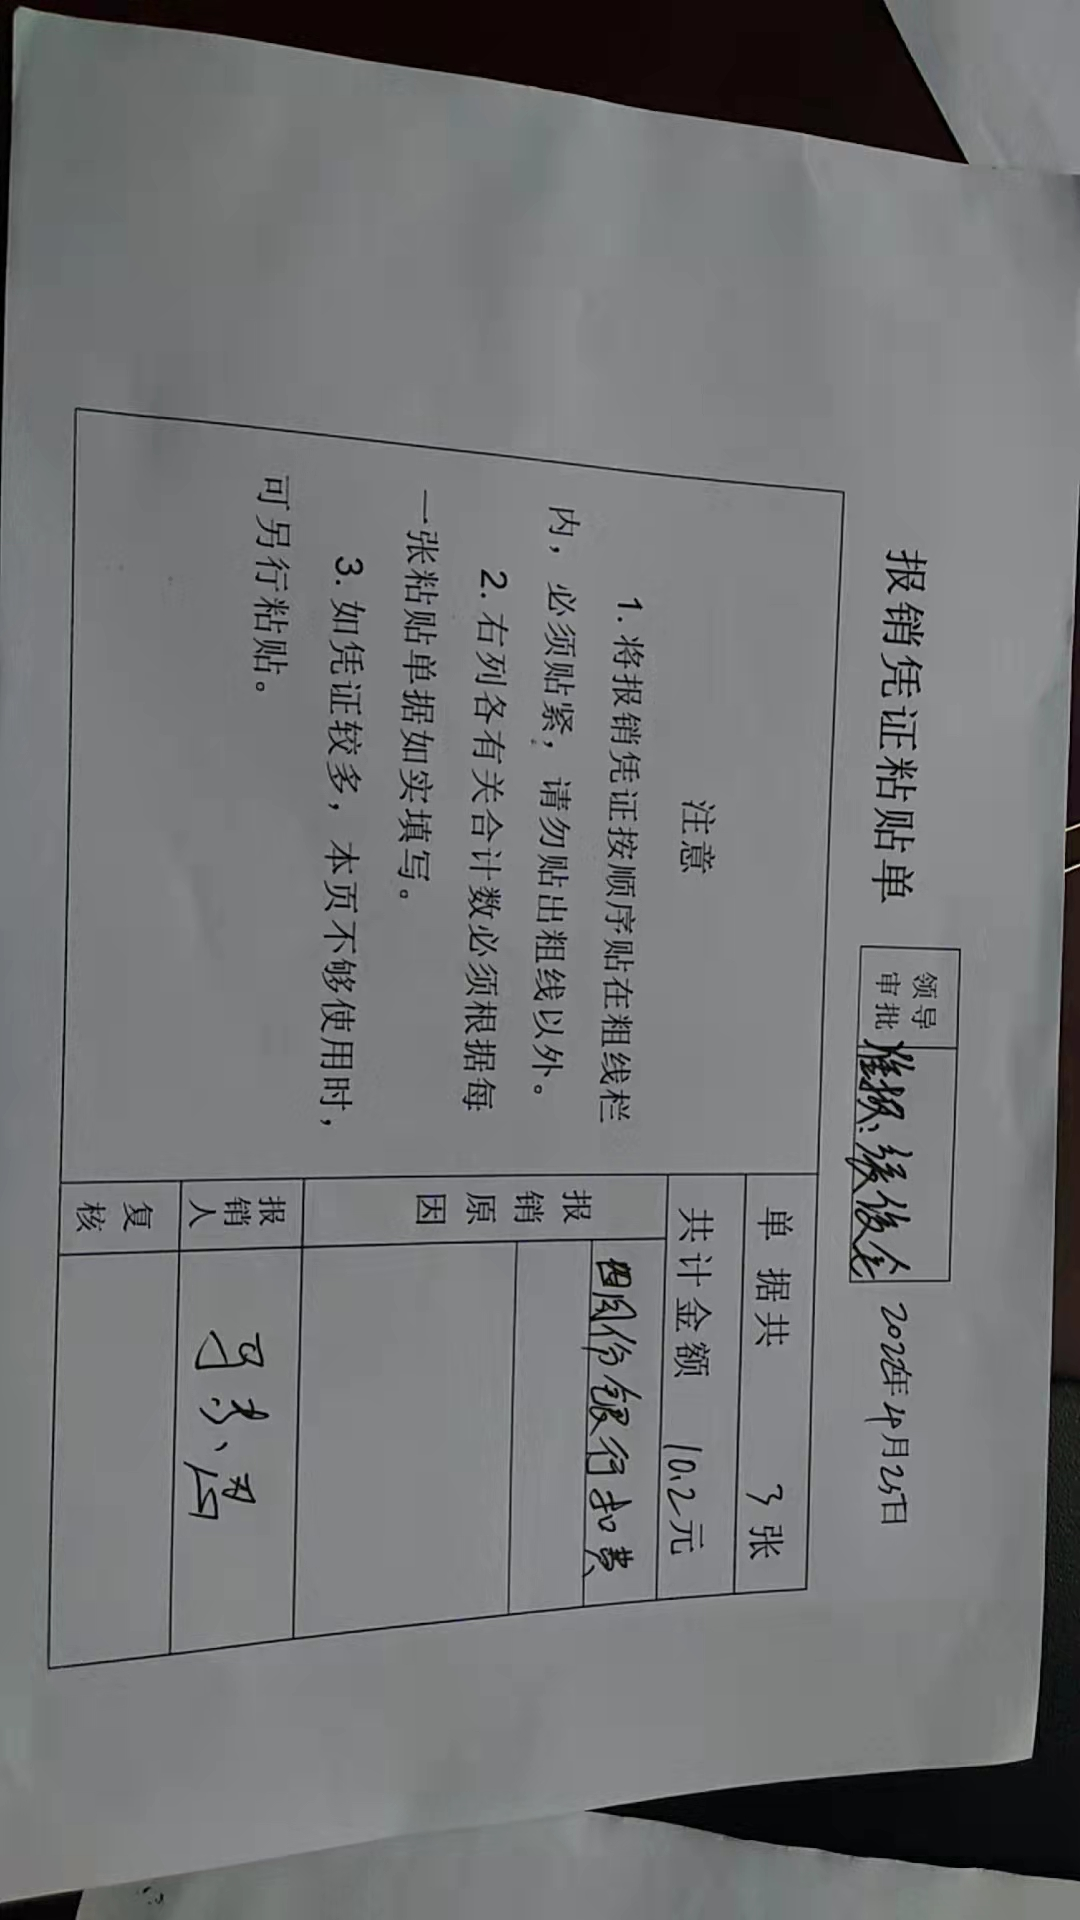 报销凭证粘贴单
领导
审批
准报:
2022年4月25日
注意
1. 将报销凭证按顺序贴在粗线栏
内，必须贴紧，请勿贴出粗线以外。
2. 右列各有关合计数必须根据每
一张粘贴单据如实填写。
3. 如凭证较多，本页不够使用时，
可另行粘贴。
单据共 3 张
共计金额 10.2元
报销原因
四月份银行扣费
报销人
复核